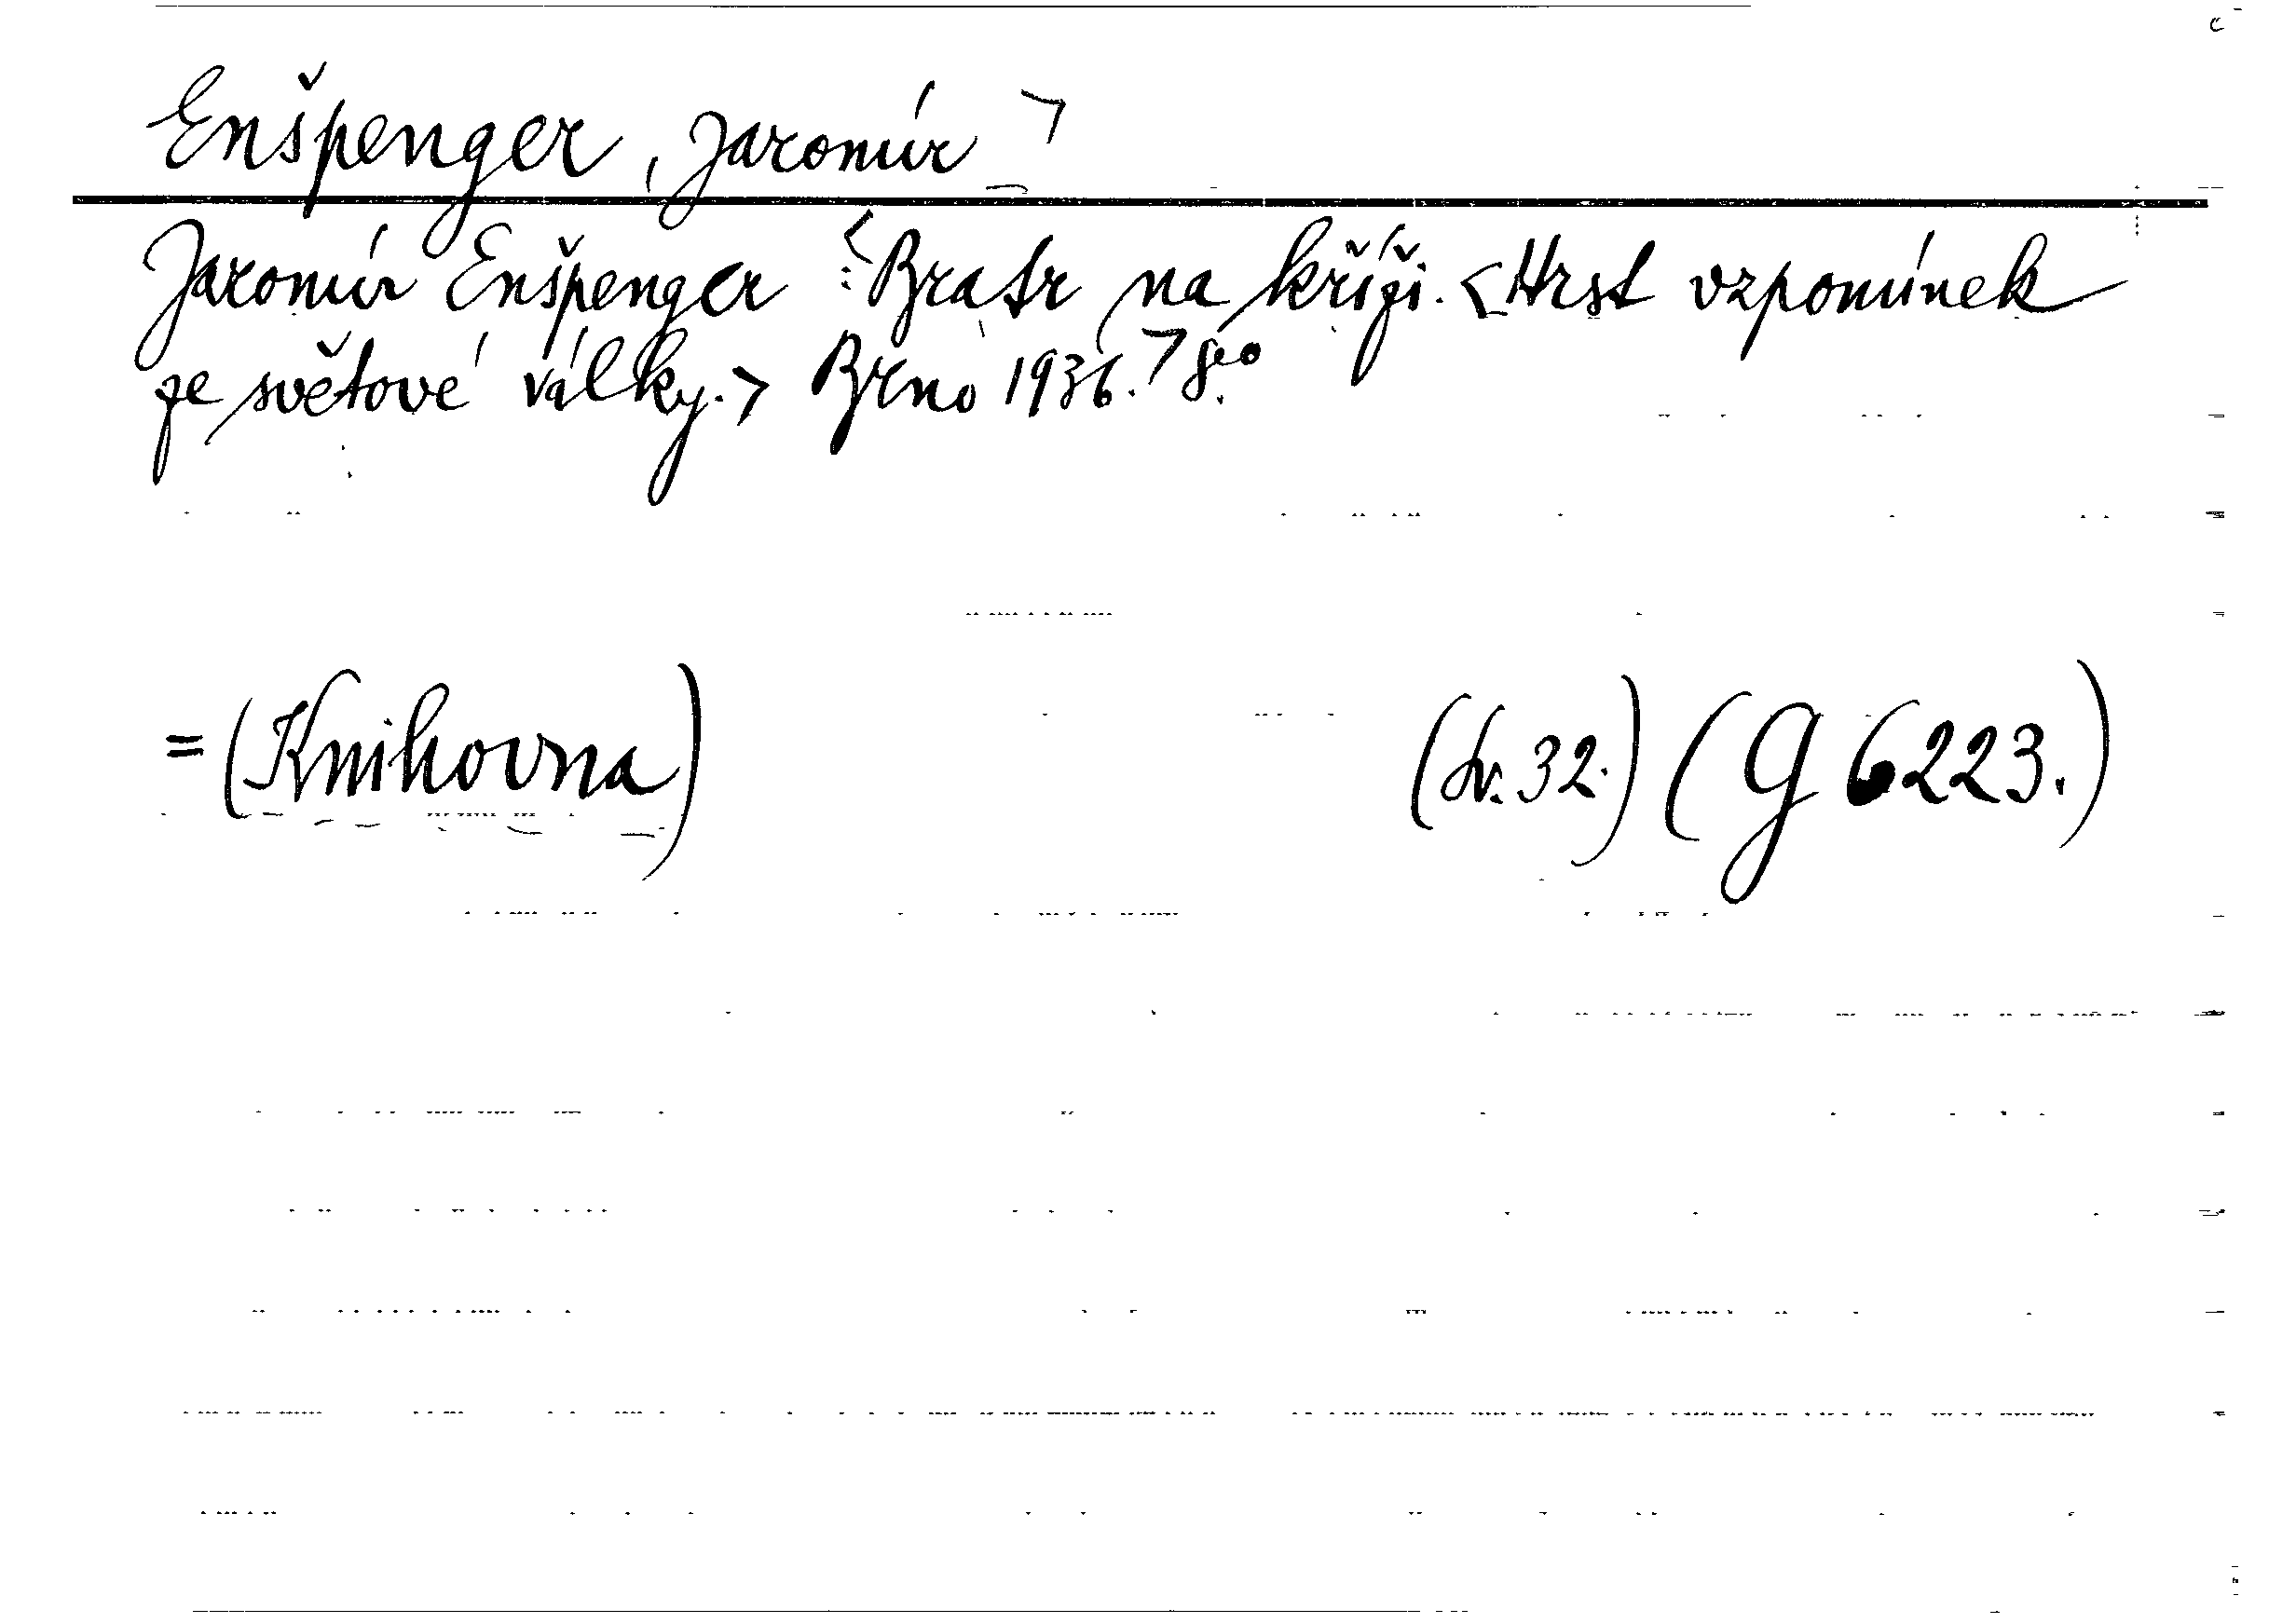 Enšpenger, Jaromír >
Jaromír Enšpenger : < Bratr na kříži. < Hrst vzpomínek
ze světové války. > Brno 1936. > 8°
= (Knihovna) (sv. 32.) (G 6223.)